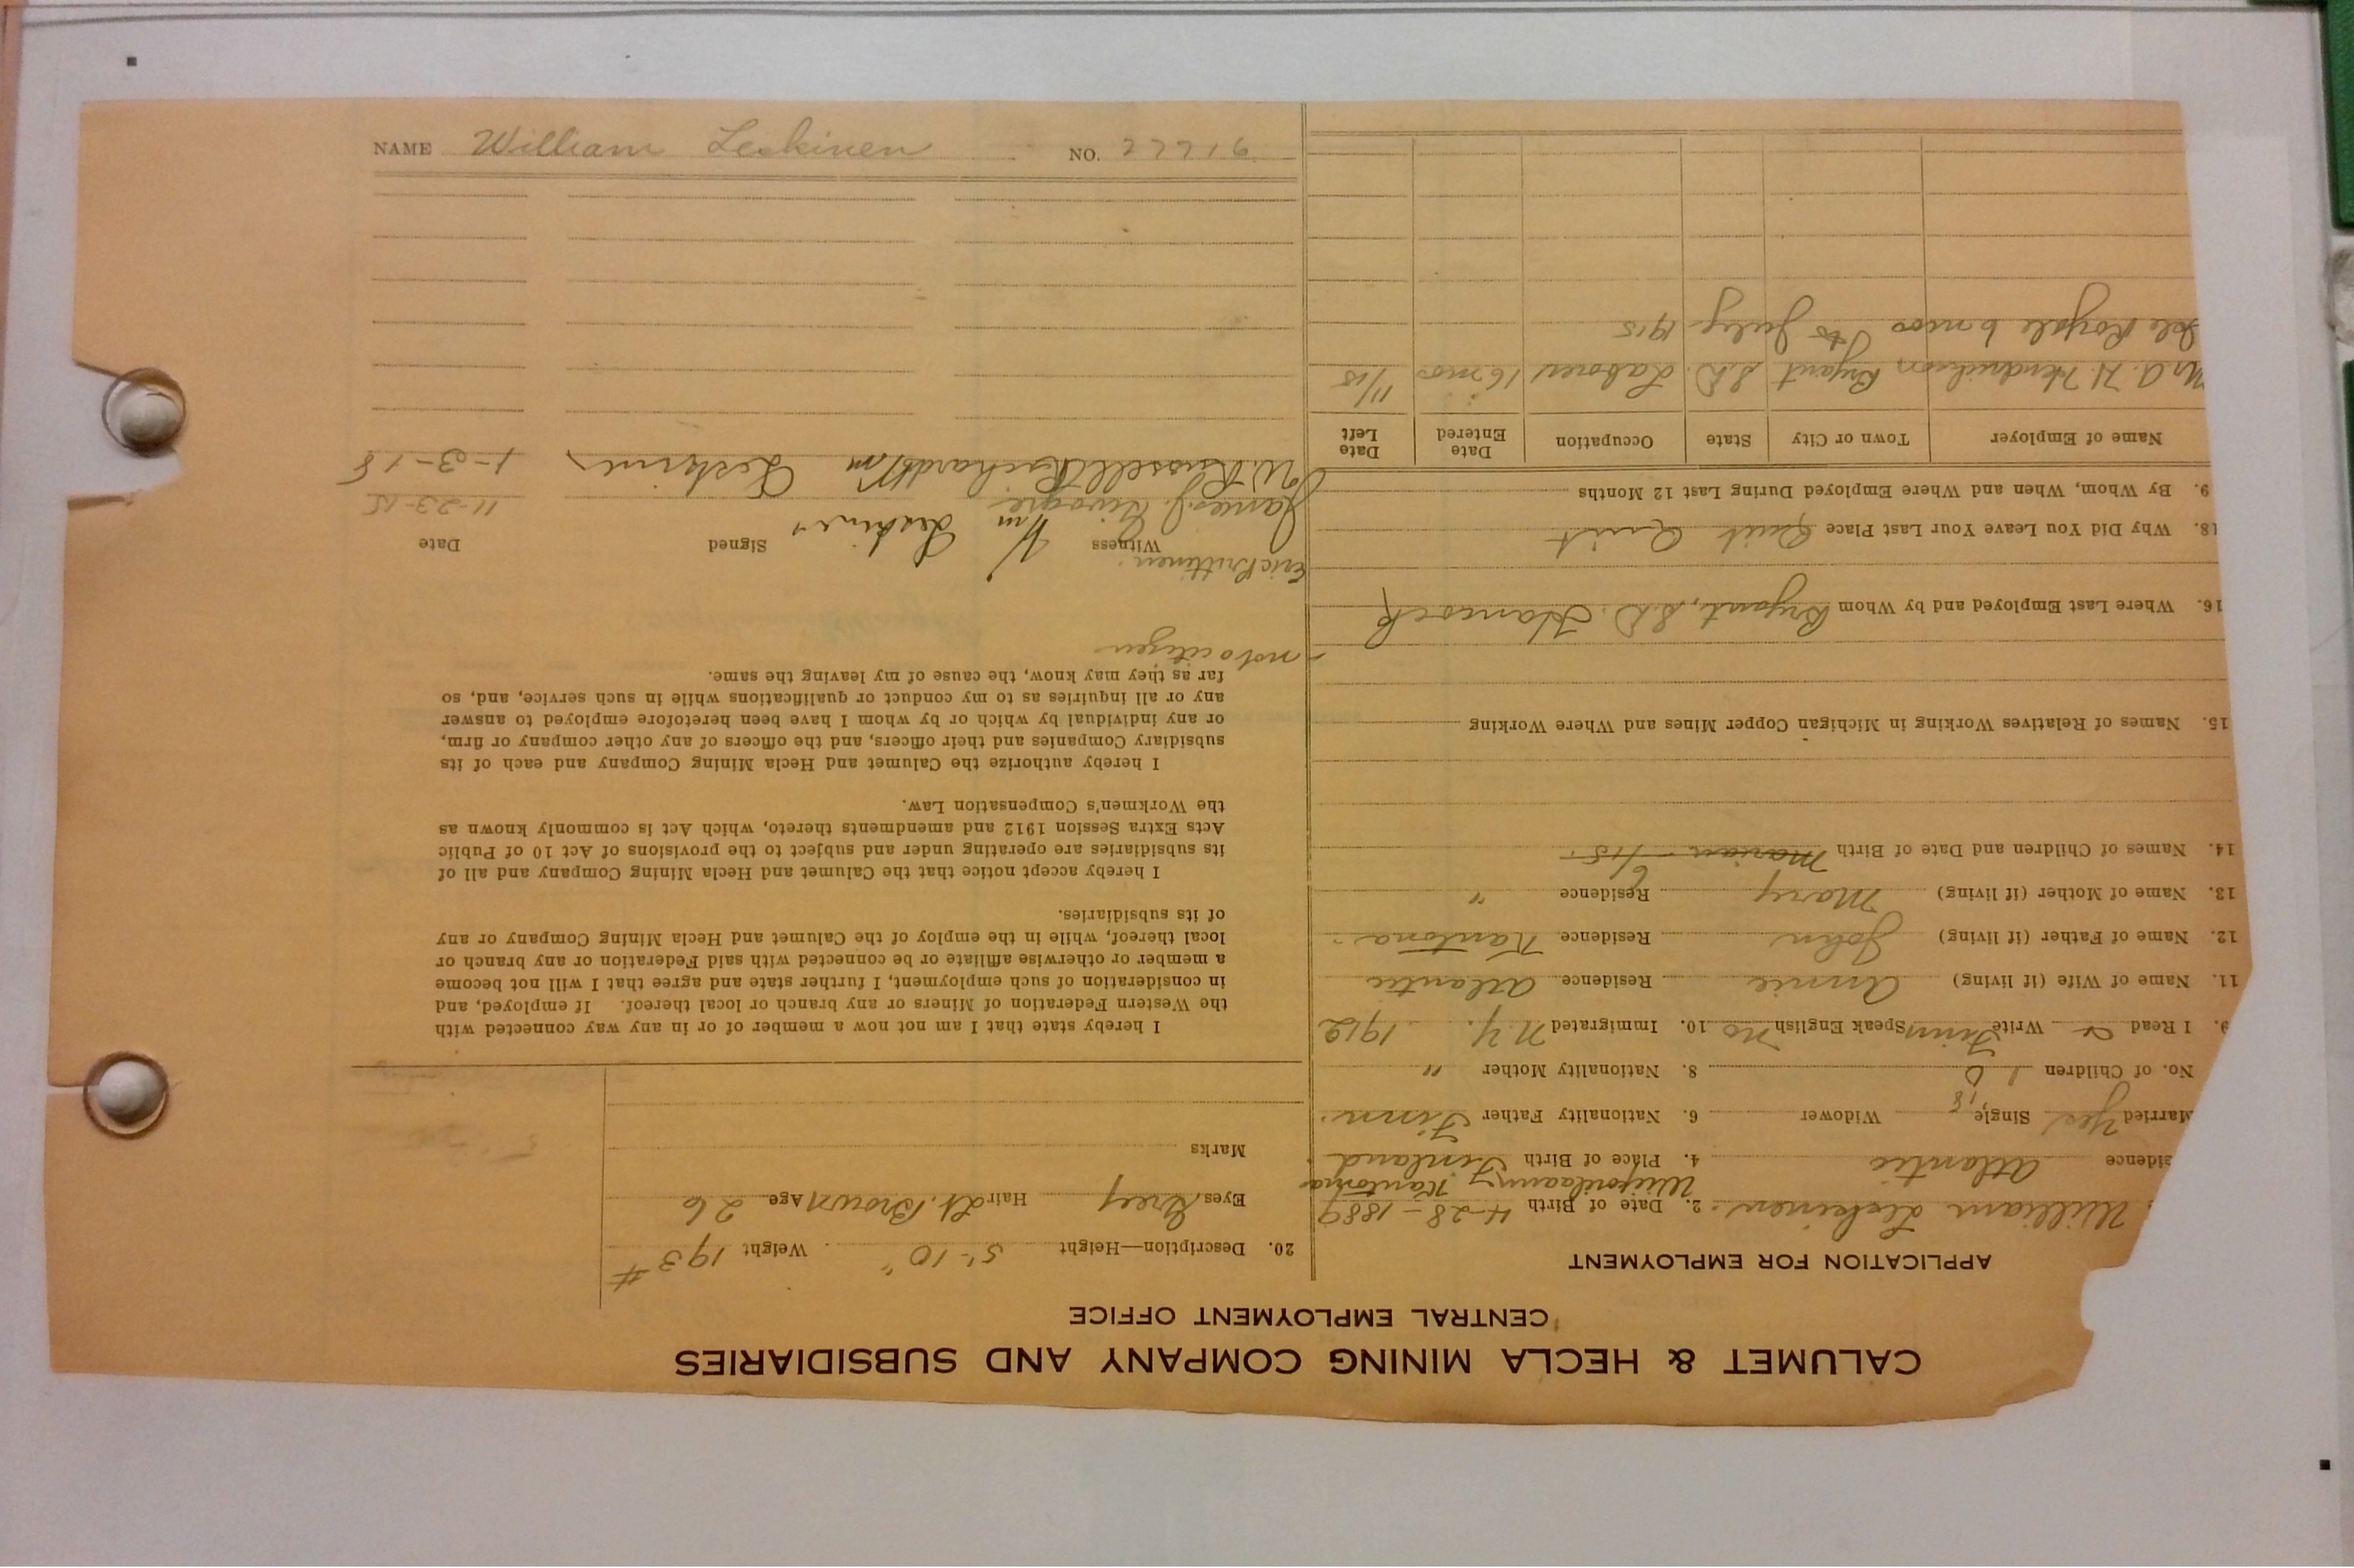 CALUMET & HECLA MINING COMPANY AND SUBSIDIARIES
CENTRAL EMPLOYMENT OFFICE
APPLICATION FOR EMPLOYMENT
William Leskinen 2. Date of Birth 4-28-1889
Kantona
sidence Atlantic 4. Place of Birth Finland
Married Yes Single Widower 6. Nationality Father Finn.
18
No. of Children 1 0 8. Nationality Mother "
9. I Read & Write Finn Speak English no 10. Immigrated N.Y. 1912
11. Name of Wife (if living) Annie Residence Atlantic
12. Name of Father (if living) John Residence Kantona
13. Name of Mother (if living) Mary Residence "
14. Names of Children and Date of Birth Marian - 6/15.
15. Names of Relatives Working in Michigan Copper Mines and Where Working
16. Where Last Employed and by Whom Bryant, S.D. Hancock
18. Why Did You Leave Your Last Place Quit Quit
9. By Whom, When and Where Employed During Last 12 Months
Name of Employer Town or City State Occupation Date Entered Date Left
Mr. A. H. Hendrickson Bryant S.D. Laborer 16 mos 11/15
Isle Royale 6 mos to July 1915
20. Description—Height 5'-10" Weight 193#
Eyes Grey Hair Lt. Brown Age 26
Marks
I hereby state that I am not now a member of or in any way connected with
the Western Federation of Miners or any branch or local thereof. If employed, and
in consideration of such employment, I further state and agree that I will not become
a member or otherwise affiliate or be connected with said Federation or any branch or
local thereof, while in the employ of the Calumet and Hecla Mining Company or any
of its subsidiaries.
I hereby accept notice that the Calumet and Hecla Mining Company and all of
its subsidiaries are operating under and subject to the provisions of Act 10 of Public
Acts Extra Session 1912 and amendments thereto, which Act is commonly known as
the Workmen's Compensation Law.
I hereby authorize the Calumet and Hecla Mining Company and each of its
subsidiary Companies and their officers, and the officers of any other company or firm,
or any individual by which or by whom I have been heretofore employed to answer
any or all inquiries as to my conduct or qualifications while in such service, and, so
far as they may know, the cause of my leaving the same.
- not a citizen
Eric
Witness Signed Date
James J. Wm Leskinen 11-23-15
W. Russell Richards Wm Leskinen 1-3-18
NAME William Leskinen NO. 27716